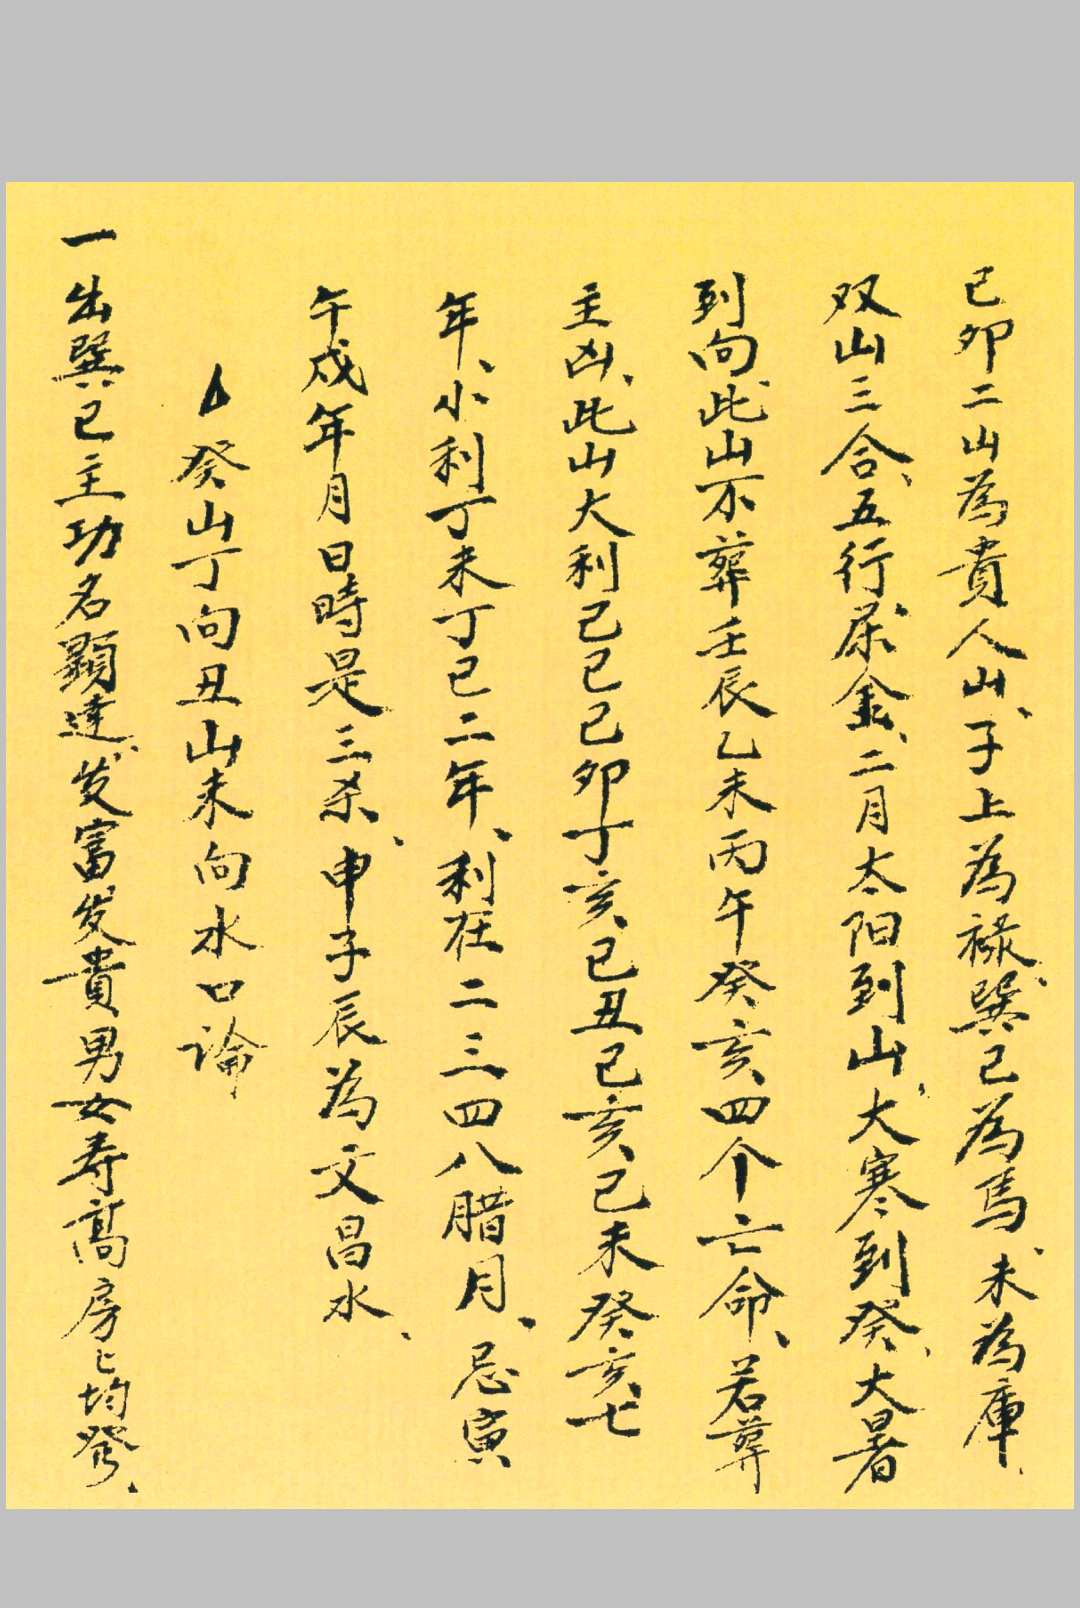 巳卯二山為貴人山、子上為祿、巽巳為馬、未為庫、
双山三合、五行屬金、二月太阳到山、大寒到癸、大暑
到向、此山不葬壬辰乙未丙午癸亥、四个亡命、若葬
主凶、此山大利己巳己卯丁亥、己丑己亥、己未癸亥、七
年、小利丁未丁巳二年、利在二三四八腊月、忌寅
午戌年月日時是三杀、申子辰為文昌水、
癸山丁向丑山未向水口論
一出巽巳主功名顯達、发富发貴男女寿高房々均發、